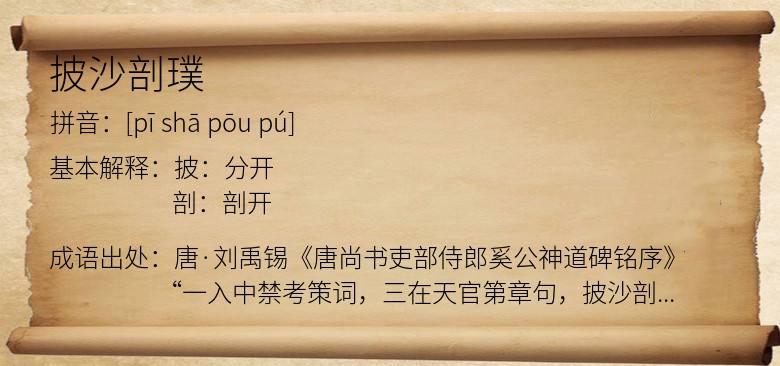 披沙剖璞
拼音：[pī shā pōu pú]
基本解释：披：分开
剖：剖开
成语出处：唐·刘禹锡《唐尚书吏部侍郎奚公神道碑铭序》
“一入中禁考策词，三在天官第章句，披沙剖...